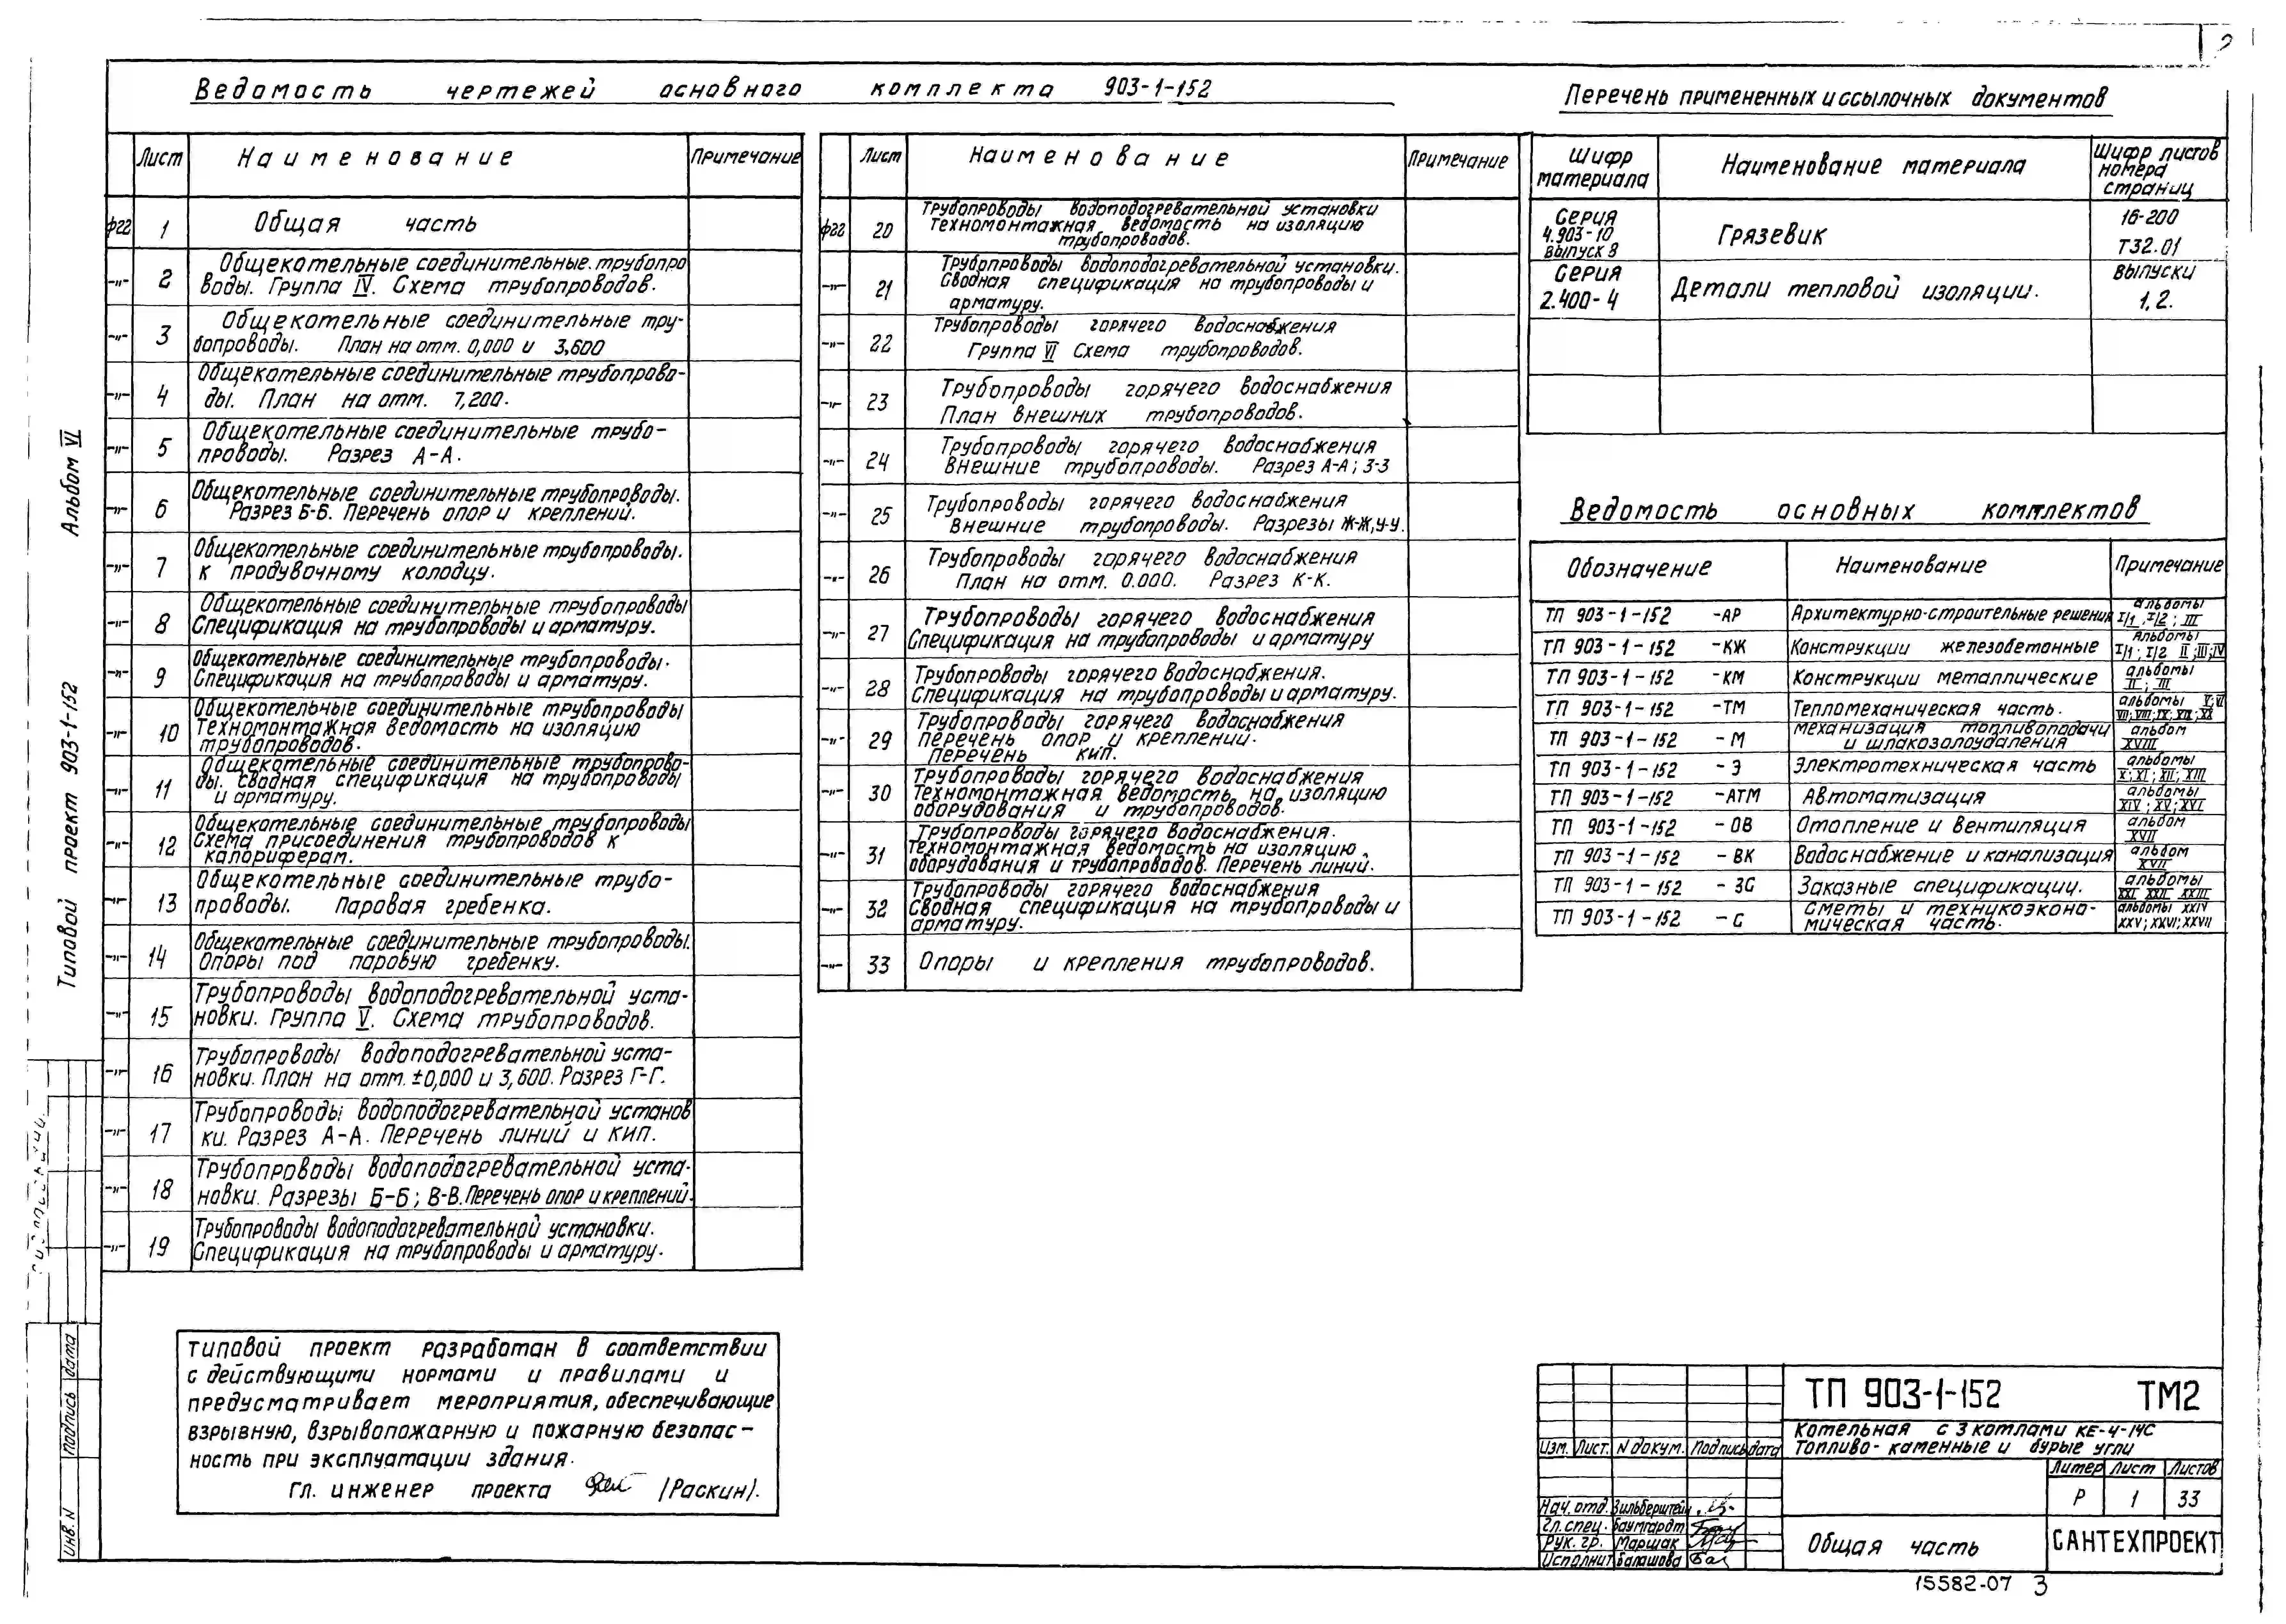 2
Ведомость чертежей основного комплекта 903-1-152
Лист Наименование Примечание
фгг 1 Общая часть
-"- 2 Общекотельные соединительные. трубопро
воды. Группа IV. Схема трубопроводов.
-"- 3 Общекотельные соединительные тру-
бопроводы. План на отм. 0,000 и 3,600
-"- 4 Общекотельные соединительные трубопрово-
ды. План на отм. 7,200.
-"- 5 Общекотельные соединительные трубо-
проводы. Разрез А-А.
-"- 6 Общекотельные соединительные трубопроводы.
Разрез Б-Б. Перечень опор и креплений.
-"- 7 Общекотельные соединительные трубопроводы.
к продувочному колодцу.
-"- 8 Общекотельные соединительные трубопроводы
Спецификация на трубопроводы и арматуру.
-"- 9 Общекотельные соединительные трубопроводы.
Спецификация на трубопроводы и арматуру.
-"- 10 Общекотельные соединительные трубопроводы
Техномонтажная ведомость на изоляцию
трубопроводов.
-"- 11 Общекотельные соединительные трубопрово-
ды. Сводная спецификация на трубопроводы
и арматуру.
-"- 12 Общекотельные соединительные трубопроводы
Схема присоединения трубопроводов к
калориферам.
-"- 13 Общекотельные соединительные трубо-
проводы. Паровая гребенка.
-"- 14 Общекотельные соединительные трубопроводы.
Опоры под паровую гребенку.
-"- 15 Трубопроводы водоподогревательной уста-
новки. Группа V. Схема трубопроводов.
-"- 16 Трубопроводы водоподогревательной уста-
новки. План на отм. ±0,000 и 3,600. Разрез Г-Г.
-"- 17 Трубопроводы водоподогревательной установ
ки. Разрез А-А. Перечень линий и кип.
-"- 18 Трубопроводы водоподогревательной уста-
новки. Разрезы Б-Б; В-В. Перечень опор и креплений.
-"- 19 Трубопроводы водоподогревательной установки.
Спецификация на трубопроводы и арматуру.
Лист Наименование Примечание
фгг 20 Трубопроводы водоподогревательной установки
Техномонтажная ведомость на изоляцию
трубопроводов.
-"- 21 Трубопроводы водоподогревательной установки.
Сводная спецификация на трубопроводы и
арматуру.
-"- 22 Трубопроводы горячего водоснабжения
Группа VI Схема трубопроводов.
-"- 23 Трубопроводы горячего водоснабжения
План внешних трубопроводов.
-"- 24 Трубопроводы горячего водоснабжения
Внешние трубопроводы. Разрез А-А; З-З
-"- 25 Трубопроводы горячего водоснабжения
Внешние трубопроводы. Разрезы Ж-Ж, У-У.
-"- 26 Трубопроводы горячего водоснабжения
План на отм. 0.000. Разрез К-К.
-"- 27 Трубопроводы горячего водоснабжения
Спецификация на трубопроводы и арматуру
-"- 28 Трубопроводы горячего водоснабжения.
Спецификация на трубопроводы и арматуру.
-"- 29 Трубопроводы горячего водоснабжения
перечень опор и креплений.
Перечень кип.
-"- 30 Трубопроводы горячего водоснабжения
Техномонтажная ведомость на изоляцию
оборудования и трубопроводов.
-"- 31 Трубопроводы горячего водоснабжения.
Техномонтажная ведомость на изоляцию
оборудования и трубопроводов. Перечень линий.
-"- 32 Трубопроводы горячего водоснабжения
Сводная спецификация на трубопроводы и
арматуру.
-"- 33 Опоры и крепления трубопроводов.
Перечень примененных и ссылочных документов
Шифр материала Наименование материала Шифр листов номера страниц
Серия 4.903-10 выпуск 8 Грязевик 16-200 Т32.01
Серия 2.400-4 Детали тепловой изоляции. выпуски 1, 2.
Ведомость основных комплектов
Обозначение Наименование Примечание
ТП 903-1-152 -АР Архитектурно-строительные решения альбомы I/1, I/2; III
ТП 903-1-152 -КЖ Конструкции железобетонные Альбомы I/1; I/2 II; III; IV
ТП 903-1-152 -КМ Конструкции металлические альбомы II; III
ТП 903-1-152 -ТМ Тепломеханическая часть. альбомы V; VI
ТП 903-1-152 -М Механизация топливоподачи
и шлакозолоудаления альбом XVIII
ТП 903-1-152 -Э Электротехническая часть альбомы X; XI; XII; XIII
ТП 903-1-152 -АТМ Автоматизация альбомы XIV; XV; XVI
ТП 903-1-152 -ОВ Отопление и вентиляция альбом XVII
ТП 903-1-152 -ВК Водоснабжение и канализация альбом XVII
ТП 903-1-152 -ЗС Заказные спецификации. альбомы XXI XXII XXIII
ТП 903-1-152 -С Сметы и техникоэконо-
мическая часть. альбомы XXIV
XXV; XXVI; XXVII
Типовой проект 903-1-152 Альбом VI
типовой проект разработан в соответствии
с действующими нормами и правилами и
предусматривает мероприятия, обеспечивающие
взрывную, взрывопожарную и пожарную безопас-
ность при эксплуатации здания.
Гл. инженер проекта /Раскин/.
Инв. N Подпись дата
ТП 903-1-152 ТМ2
Котельная с 3 котлами КЕ-4-14С
Топливо - каменные и бурые угли
Изм. Лист. N докум. Подпись дата
Литер Лист Листов
Р 1 33
Нач. отд. Зильберштейн
Гл. спец. Баумгардт
Рук. гр. Маршак
Исполнит Балашова
Общая часть
САНТЕХПРОЕКТ
15582-07 3